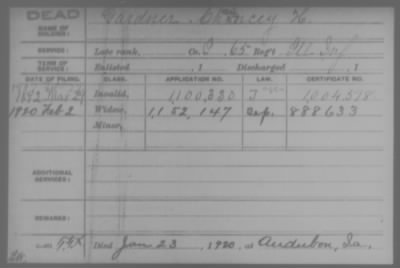 DEAD
NAME OF SOLDIER: Gardner, Chancey H.
SERVICE: Late rank, Co. C, 65 Reg't Ill. Inf.
TERM OF SERVICE: Enlisted , 1 Discharged , 1
DATE OF FILING. CLASS. APPLICATION NO. LAW. CERTIFICATE NO.
1892 Mar 29 Invalid, 1,100,330 1,004,518
1920 Feb 2 Widow, 1,152,147 888633
Minor,
ADDITIONAL SERVICES:
REMARKS:
Died Jan 23, 1920, at Audubon, Ia.